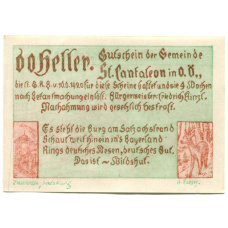 60 Heller. Gutschein der Gemeinde
St. Pantaleon in O.Ö.,
die lt. G.R.B. v. für diese Scheine haftet und sie 4 Wochen
nach Bekanntmachung einlöst. Bürgermeister: Friedrich
Nachahmung wird gesetzlich bestraft.
Es steht die Burg am Salzachstrand
Schaut weit hinein ins Bayerland
Rings deutsches Wesen, deutsches Gut.
Das ist – Wildshut.